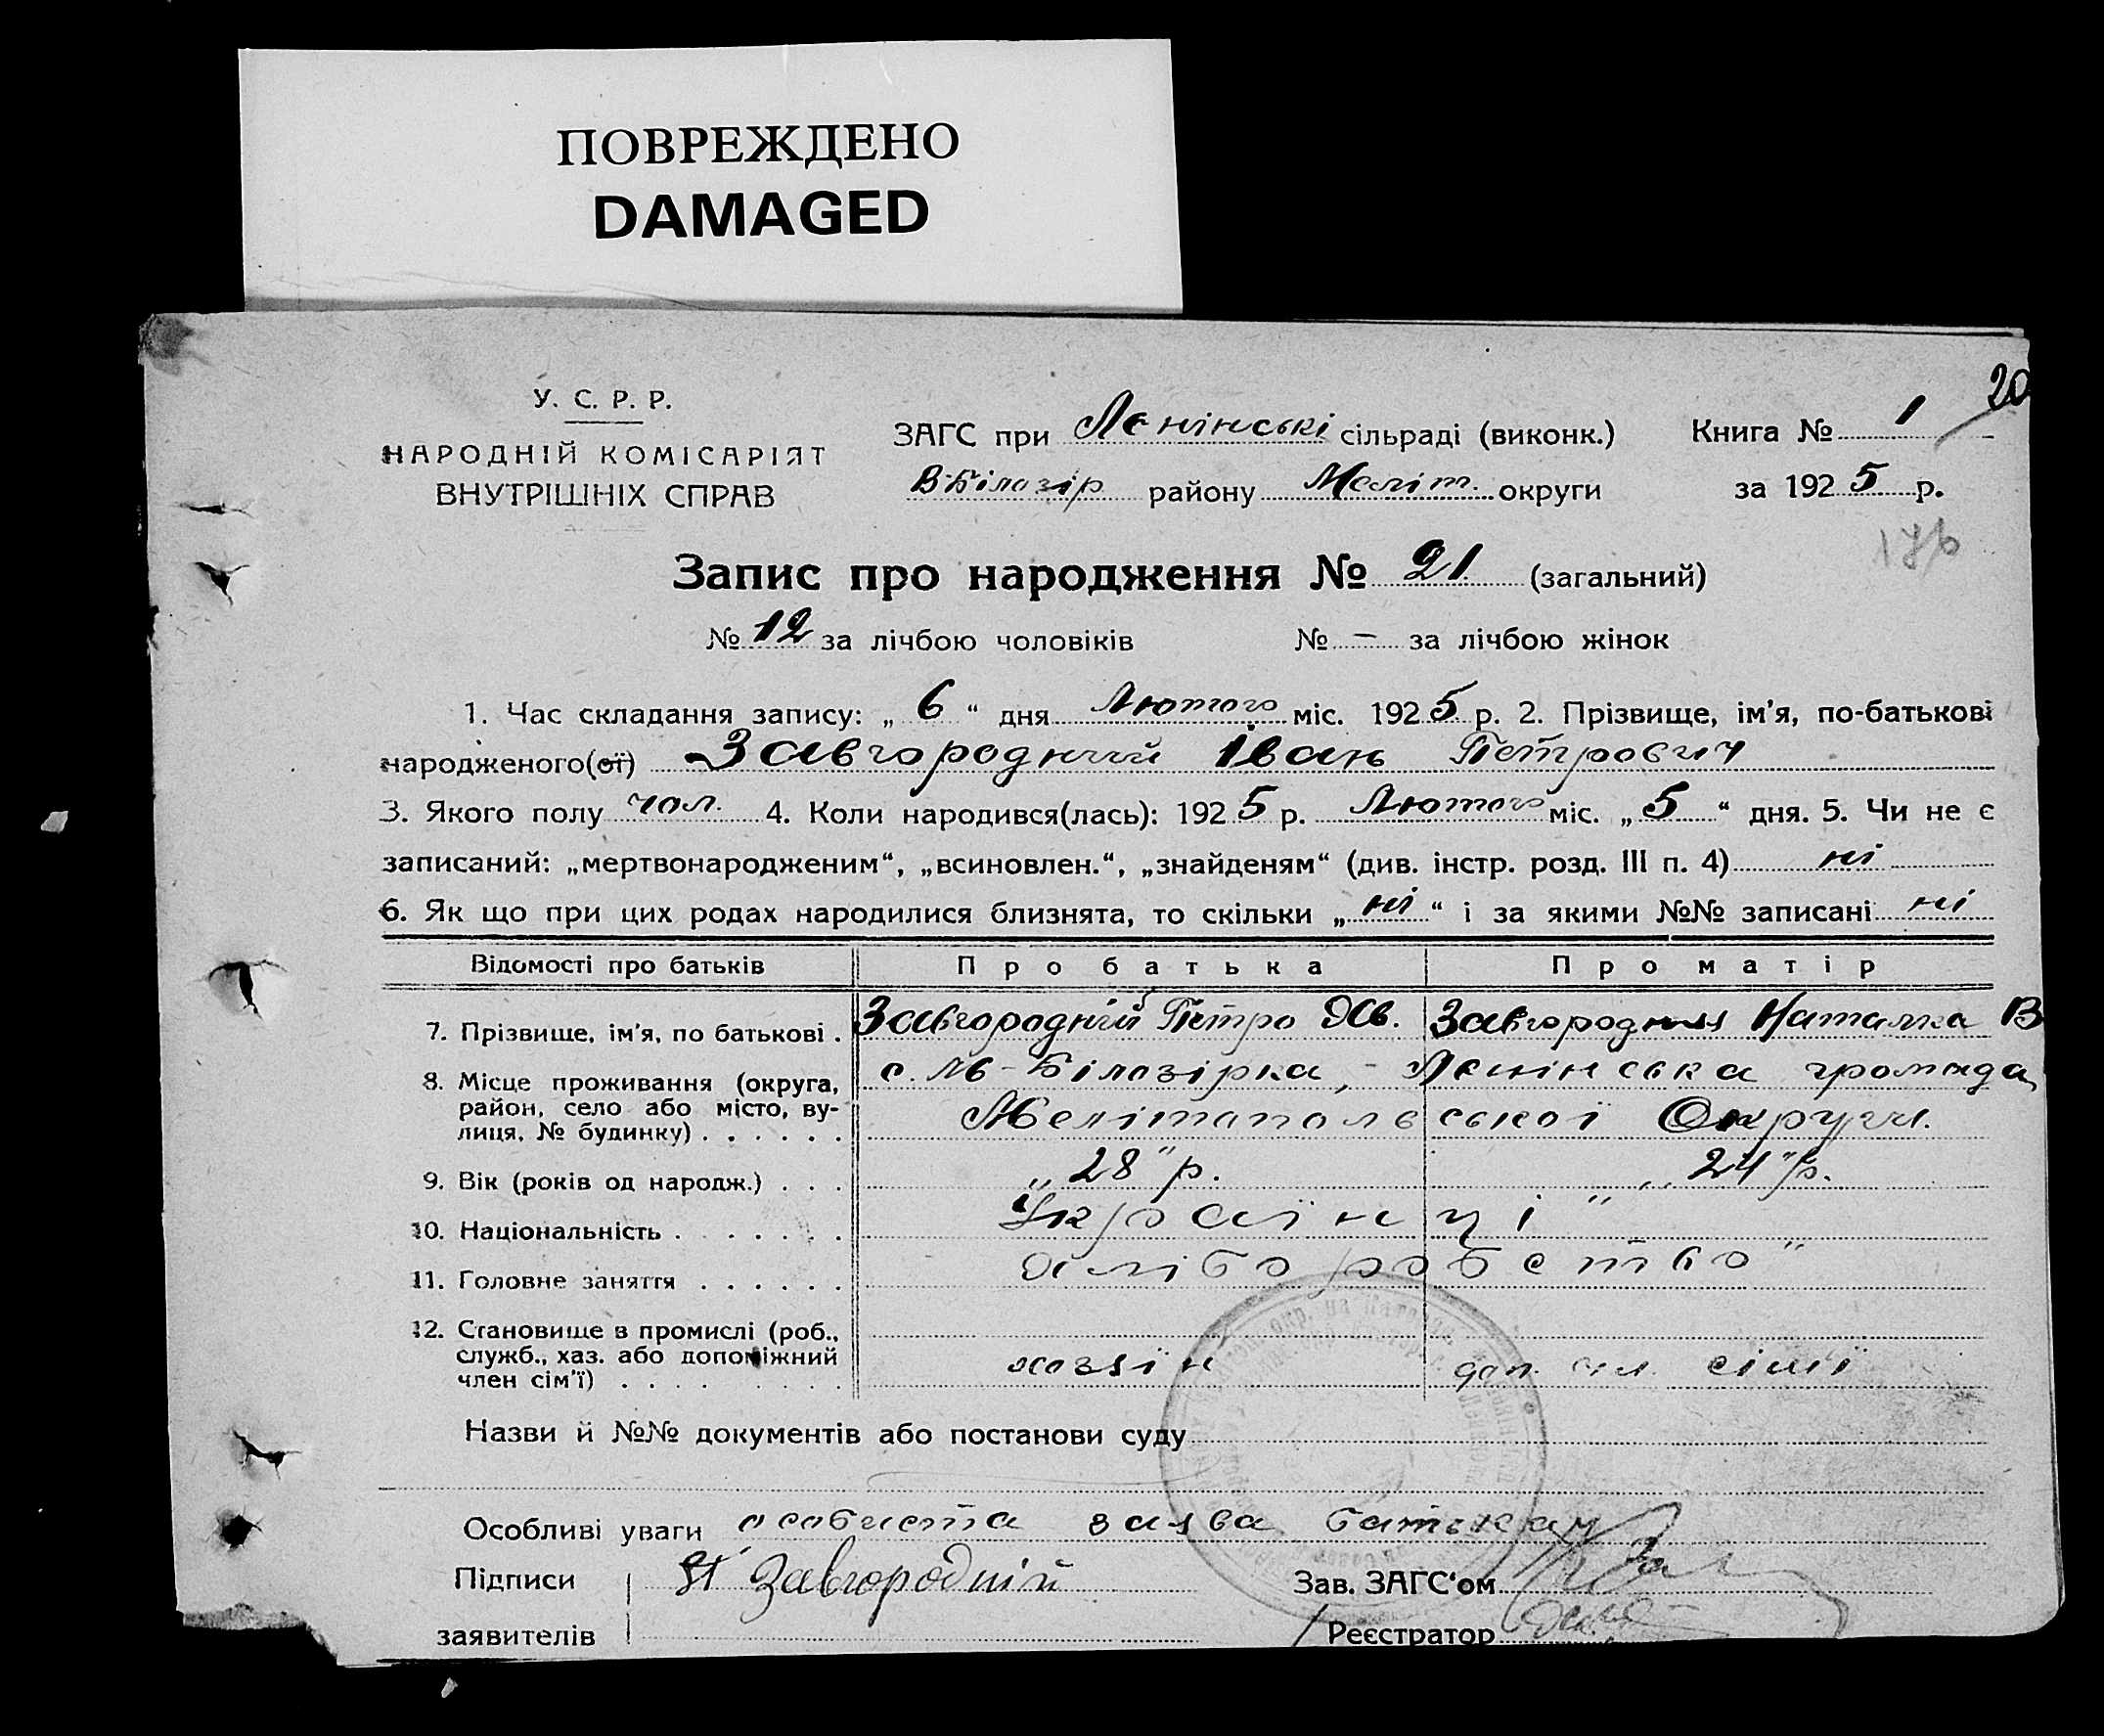 ПОВРЕЖДЕНО
DAMAGED
20
У. С. Р. Р.
НАРОДНІЙ КОМІСАРІЯТ
ВНУТРІШНІХ СПРАВ
ЗАГС при Ленінські сільраді (виконк.)
В-Білозір району Меліт. округи
Книга № 1
за 1925 р.
176
Запис про народження № 21 (загальний)
№ 12 за лічбою чоловіків № – за лічбою жінок
1. Час складання запису: „ 6 “ дня Лютого міс. 1925 р. 2. Прізвище, ім'я, по-батькові
народженого(ої) Завгородний Іван Петрович
3. Якого полу чол. 4. Коли народився(лась): 1925 р. Лютого міс. „ 5 “ дня. 5. Чи не є
записаний: „мертвонародженим“, „всиновлен.“, „знайденям“ (див. інстр. розд. III п. 4) ні
6. Як що при цих родах народилися близнята, то скільки „ ні “ і за якими №№ записані ні
Відомості про батьків Про батька Про матір
7. Прізвище, ім'я, по батькові . Завгородній Петро Ів. Завгородняя Наталка В
8. Місце проживання (округа, с. -Білозірка, - Ленінська громада
район, село або місто, ву-
лиця, № будинку) . . . . . . Мелітопольської Округи.
9. Вік (років од народж.) . . . „28" р. „24" р.
10. Національність . . . . . . . Українці "
11. Головне заняття . . . . . . хліборобство "
12. Становище в промислі (роб.,
служб., хаз. або допоміжний хозяїн доп. чл. сімї
член сім'ї) . . . . . . . . .
Назви й №№ документів або постанови суду
Особливі уваги особиста заява батька
Підписи П Завгородній Зав. ЗАГС'ом
заявителів Реєстратор